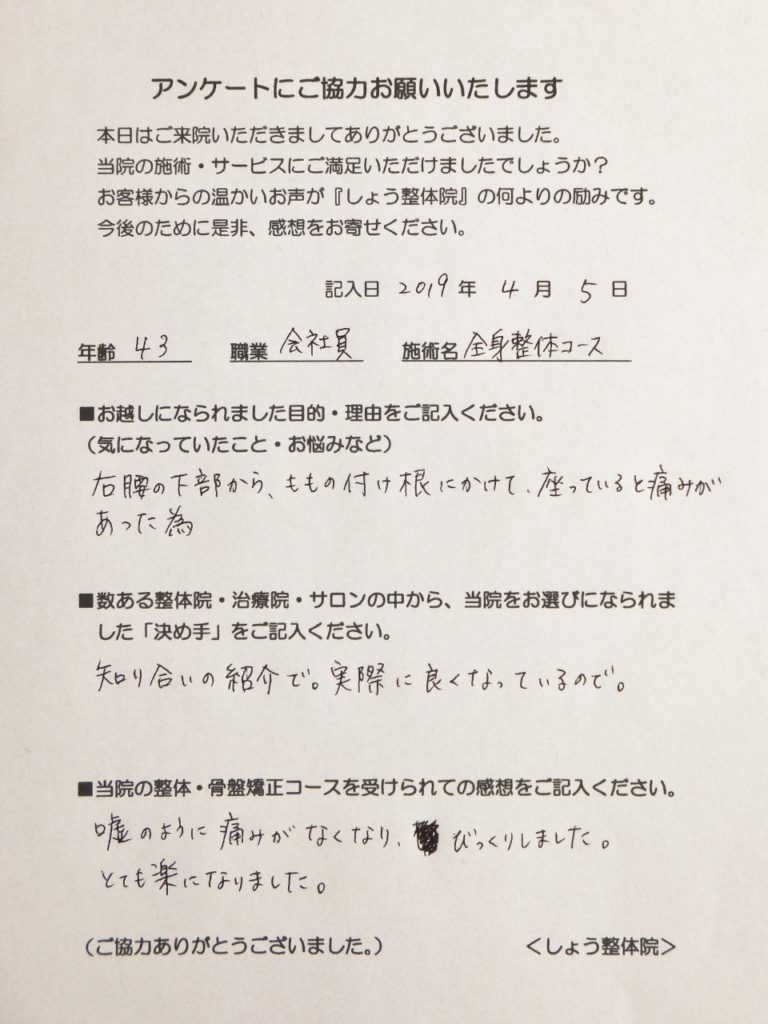 アンケートにご協力お願いいたします
本日はご来院いただきましてありがとうございました。
当院の施術・サービスにご満足いただけましたでしょうか？
お客様からの温かいお声が『しょう整体院』の何よりの励みです。
今後のために是非、感想をお寄せください。
記入日 2019 年 4 月 5 日
年齢 43 職業 会社員 施術名 全身整体コース
■お越しになられました目的・理由をご記入ください。
（気になっていたこと・お悩みなど）
右腰の下部から、ももの付け根にかけて、座っていると痛みが
あった為
■数ある整体院・治療院・サロンの中から、当院をお選びになられま
した「決め手」をご記入ください。
知り合いの紹介で。実際に良くなっているので。
■当院の整体・骨盤矯正コースを受けられての感想をご記入ください。
嘘のように痛みがなくなり、びっくりしました。
とても楽になりました。
（ご協力ありがとうございました。） ＜しょう整体院＞